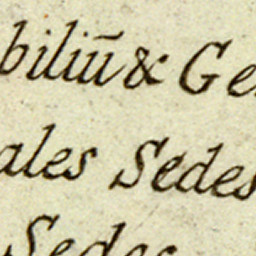 biliū & Ge
ales Sedes
Sedes